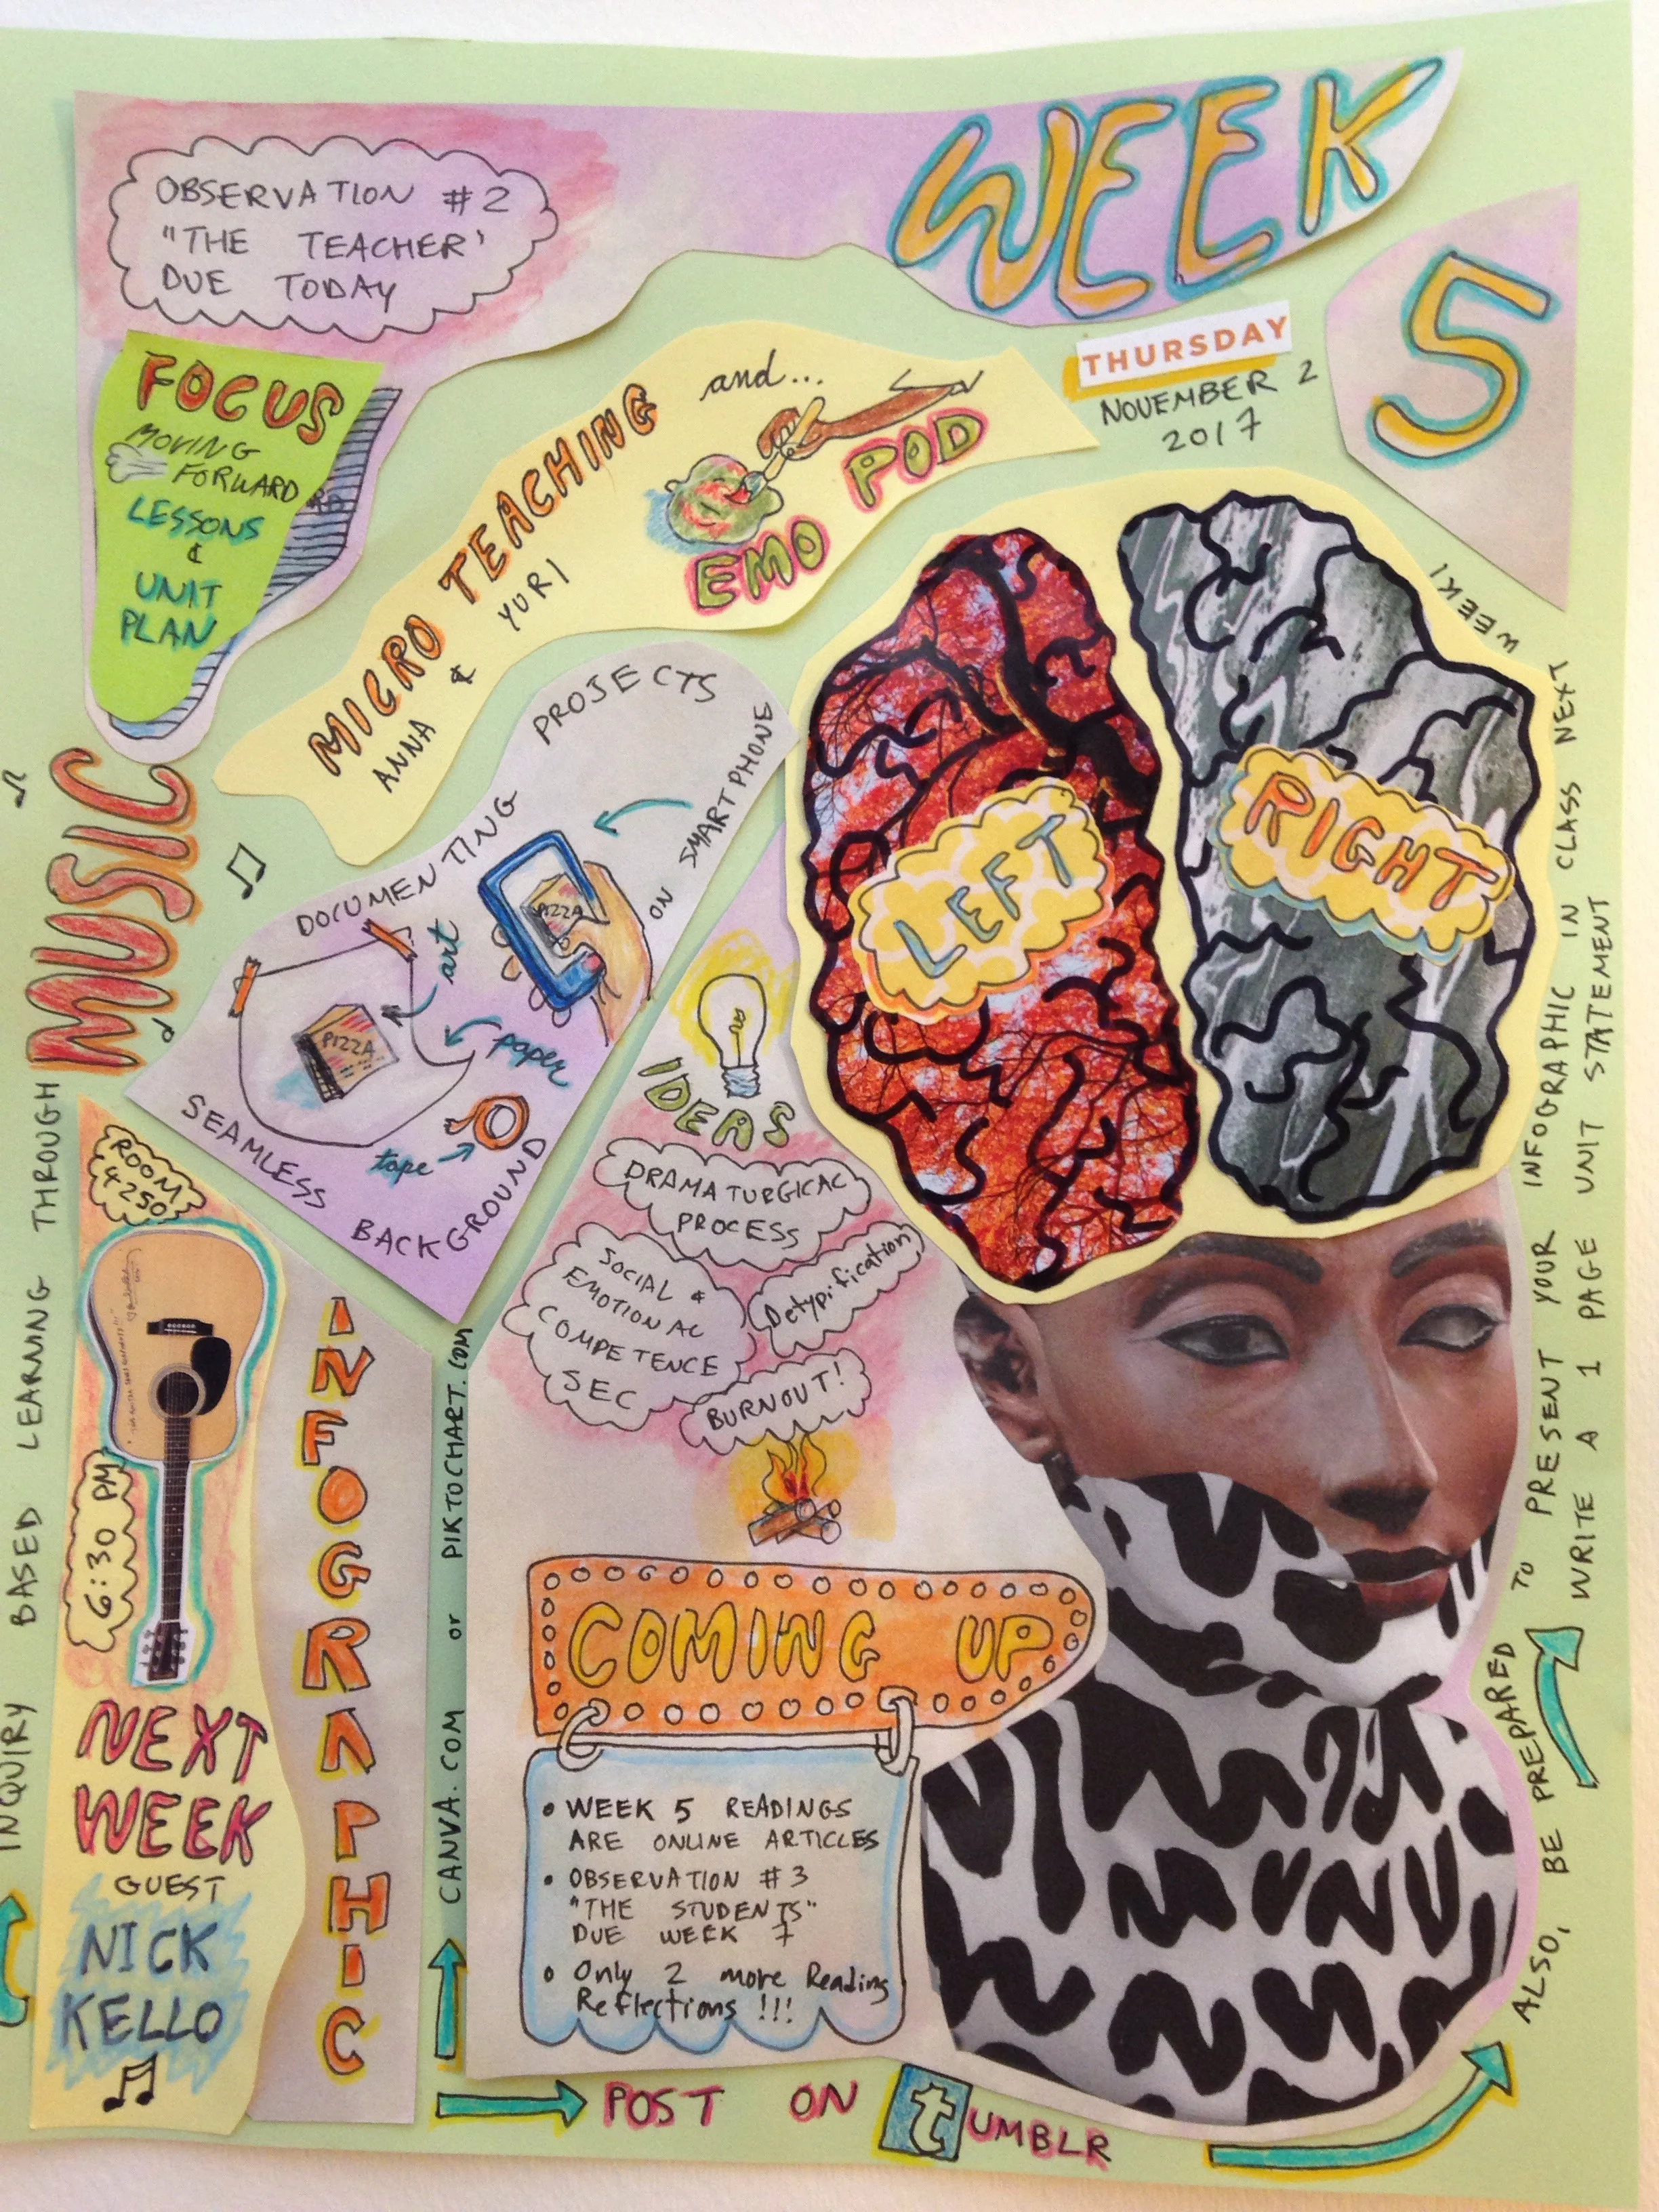 WEEK
5
THURSDAY
NOVEMBER 2
2017
OBSERVATION #2
"THE TEACHER'
DUE TODAY
FOCUS
MOVING
FORWARD
LESSONS
&
UNIT
PLAN
MICRO TEACHING
ANNA & YURI
and...
EMO POD
DOCUMENTING PROJECTS
ON SMARTPHONE
PIZZA
art
PIZZA
paper
tape
SEAMLESS BACKGROUND
LEFT
RIGHT
IDEAS
DRAMATURGICAL
PROCESS
SOCIAL &
EMOTIONAL
COMPETENCE
SEC
Detypification
BURNOUT!
INQUIRY BASED LEARNING THROUGH
MUSIC
ROOM
4250
6:30 PM
NEXT
WEEK
GUEST
NICK
KELLO
INFOGRAPHIC
CANVA.COM or PIKTOCHART.COM
COMING UP
• WEEK 5 READINGS
ARE ONLINE ARTICLES
• OBSERVATION #3
"THE STUDENTS"
DUE WEEK 7
• Only 2 more Reading
Reflections !!!
POST ON tUMBLR
ALSO, BE PREPARED TO PRESENT YOUR INFOGRAPHIC IN CLASS NEXT WEEK!
WRITE A 1 PAGE UNIT STATEMENT